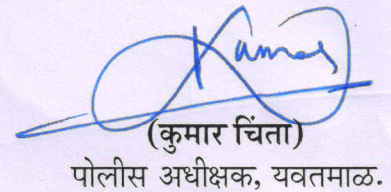 Kumar
(कुमार चिंता)
पोलीस अधीक्षक, यवतमाळ.